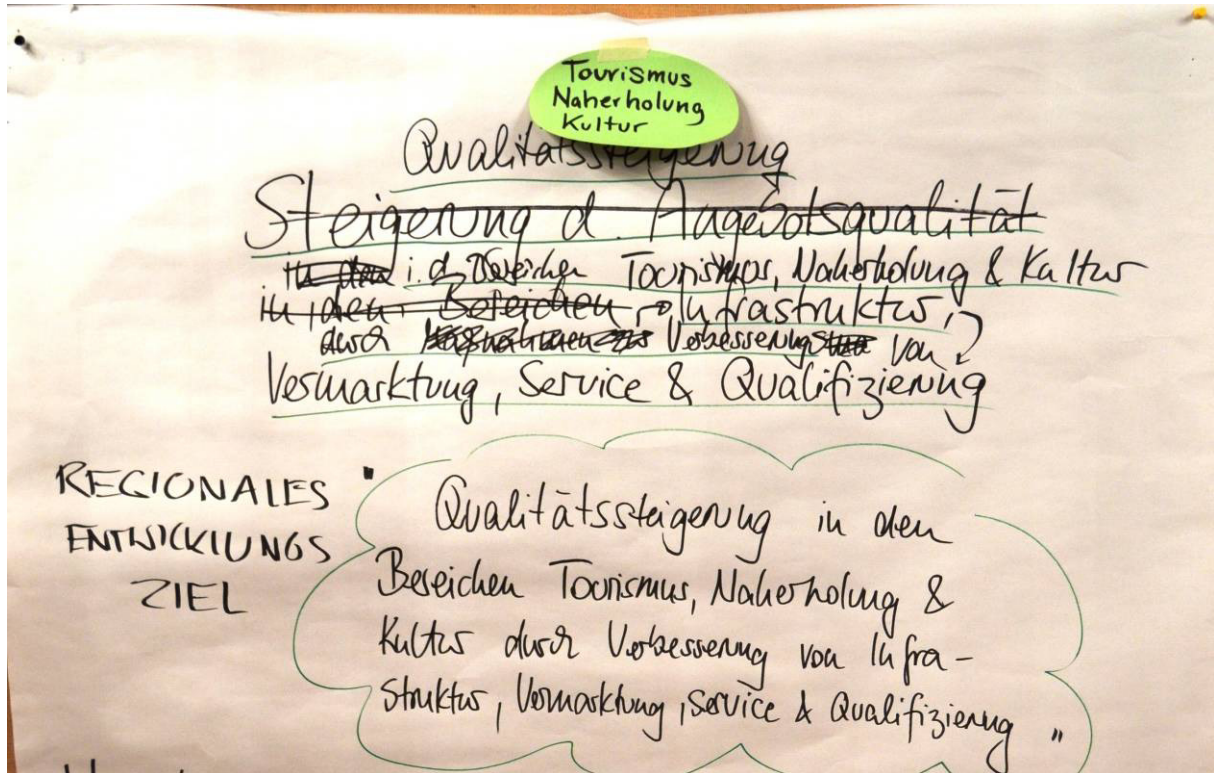 Tourismus
Naherholung
Kultur
Qualitätssteigerung
Steigerung d. Angebotsqualität
in den i. d. Bereichen Tourismus, Naherholung & Kultur
in den Bereichen Infrastruktur,
durch Massnahmen zur Verbesserung von
Vermarktung, Service & Qualifizierung
REGIONALES
ENTWICKLUNGS
ZIEL
" Qualitätssteigerung in den
Bereichen Tourismus, Naherholung &
Kultur durch Verbesserung von Infra-
struktur, Vermarktung, Service & Qualifizierung "